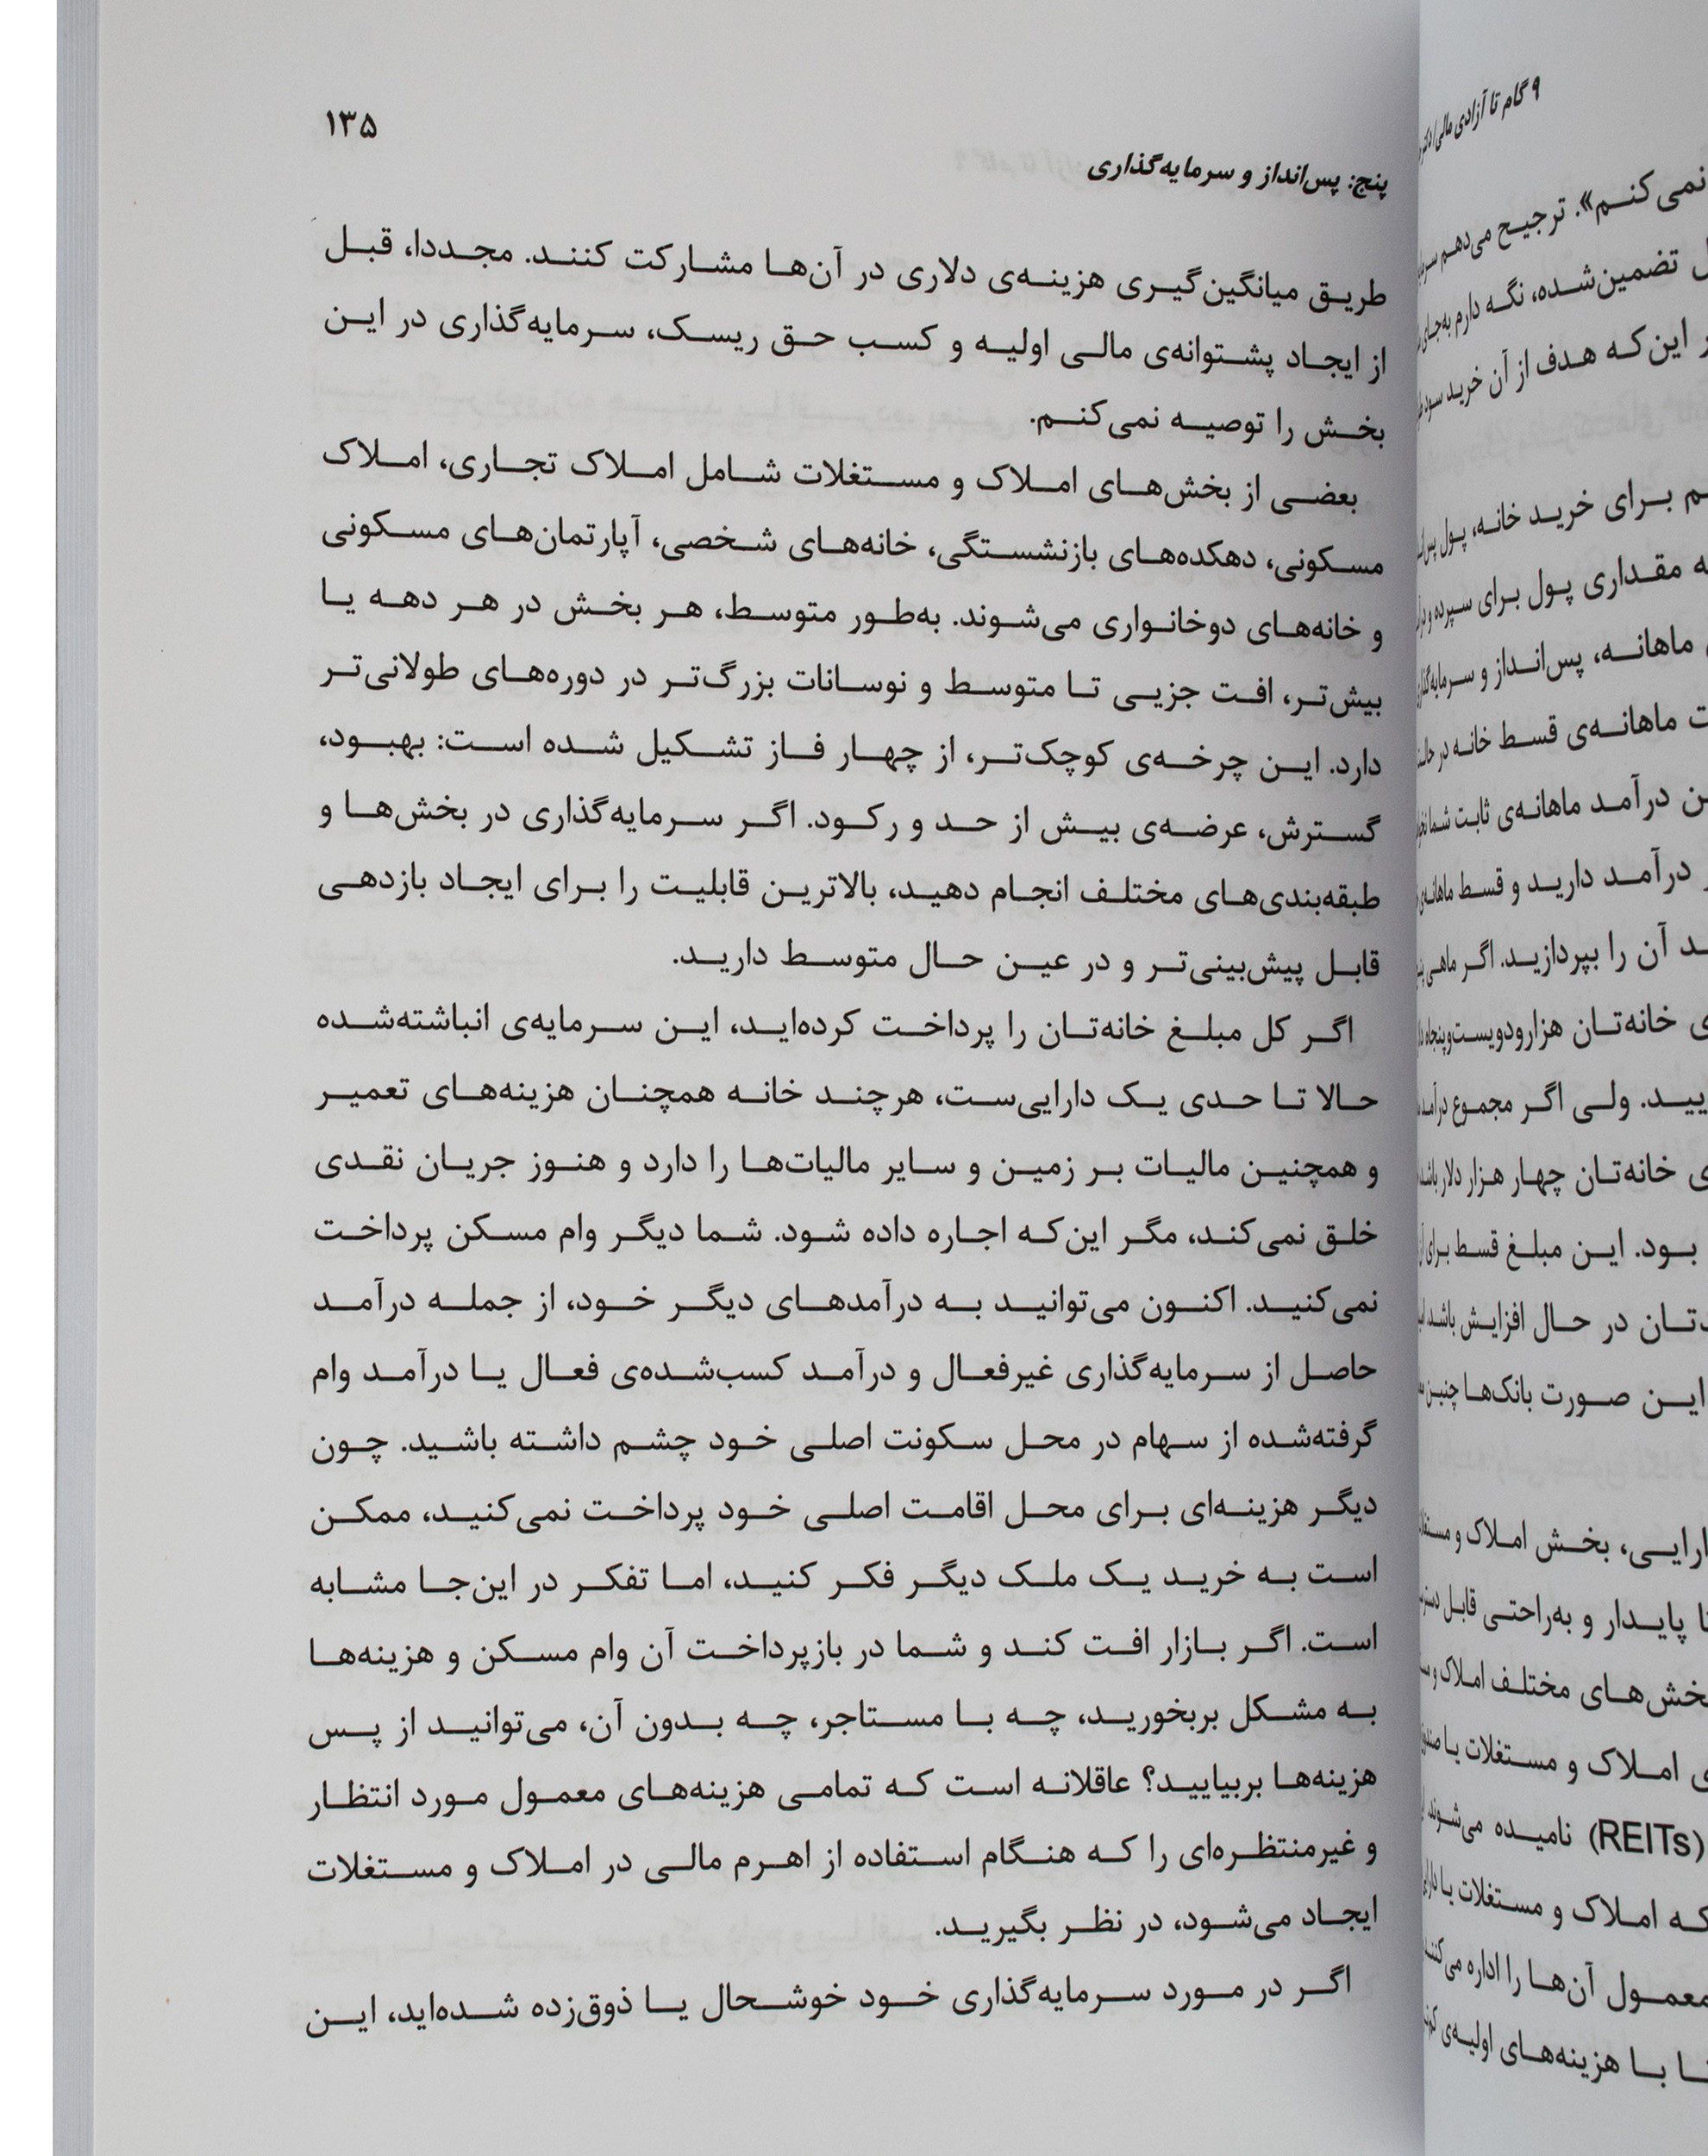 ۱۳۵
پنج: پس‌انداز و سرمایه‌گذاری
طریق میانگین‌گیری هزینه‌ی دلاری در آن‌ها مشارکت کنند. مجددا، قبل
از ایجاد پشتوانه‌ی مالی اولیه و کسب حق ریسک، سرمایه‌گذاری در این
بخش را توصیه نمی‌کنم.
بعضی از بخش‌های املاک و مستغلات شامل املاک تجاری، املاک
مسکونی، دهکده‌های بازنشستگی، خانه‌های شخصی، آپارتمان‌های مسکونی
و خانه‌های دوخانواری می‌شوند. به‌طور متوسط، هر بخش در هر دهه یا
بیش‌تر، افت جزیی تا متوسط و نوسانات بزرگ‌تر در دوره‌های طولانی‌تر
دارد. این چرخه‌ی کوچک‌تر، از چهار فاز تشکیل شده است: بهبود،
گسترش، عرضه‌ی بیش از حد و رکود. اگر سرمایه‌گذاری در بخش‌ها و
طبقه‌بندی‌های مختلف انجام دهید، بالاترین قابلیت را برای ایجاد بازدهی
قابل پیش‌بینی‌تر و در عین حال متوسط دارید.
اگر کل مبلغ خانه‌تان را پرداخت کرده‌اید، این سرمایه‌ی انباشته‌شده
حالا تا حدی یک دارایی‌ست، هرچند خانه همچنان هزینه‌های تعمیر
و همچنین مالیات بر زمین و سایر مالیات‌ها را دارد و هنوز جریان نقدی
خلق نمی‌کند، مگر این‌که اجاره داده شود. شما دیگر وام مسکن پرداخت
نمی‌کنید. اکنون می‌توانید به درآمدهای دیگر خود، از جمله درآمد
حاصل از سرمایه‌گذاری غیرفعال و درآمد کسب‌شده‌ی فعال یا درآمد وام
گرفته‌شده از سهام در محل سکونت اصلی خود چشم داشته باشید. چون
دیگر هزینه‌ای برای محل اقامت اصلی خود پرداخت نمی‌کنید، ممکن
است به خرید یک ملک دیگر فکر کنید، اما تفکر در این‌جا مشابه
است. اگر بازار افت کند و شما در بازپرداخت آن وام مسکن و هزینه‌ها
به مشکل بربخورید، چه با مستاجر، چه بدون آن، می‌توانید از پس
هزینه‌ها بربیایید؟ عاقلانه است که تمامی هزینه‌های معمول مورد انتظار
و غیرمنتظره‌ای را که هنگام استفاده از اهرم مالی در املاک و مستغلات
ایجاد می‌شود، در نظر بگیرید.
اگر در مورد سرمایه‌گذاری خود خوشحال یا ذوق‌زده شده‌اید، این
۹ گام تا آزادی مالی/
نمی‌کنم». ترجیح می‌دهم
تضمین‌شده، نگه دارم به‌جای
این‌که هدف از آن خرید سود
برای خرید خانه، پول
مقداری پول برای سپرده و
ماهانه، پس‌انداز و
ماهانه‌ی قسط خانه در
درآمد ماهانه‌ی ثابت شما
درآمد دارید و قسط
آن را بپردازید. اگر
خانه‌تان هزارودویست‌وپنجاه
ولی اگر مجموع
خانه‌تان چهار هزار دلار باشد
بود. این مبلغ قسط برای
در حال افزایش باشد
این صورت بانک‌ها چنین
بخش املاک و
پایدار و به‌راحتی قابل
مختلف املاک و
املاک و مستغلات یا
(REITs) نامیده می‌شوند
که املاک و مستغلات یا
معمول آن‌ها را اداره
با هزینه‌های اولیه‌ی